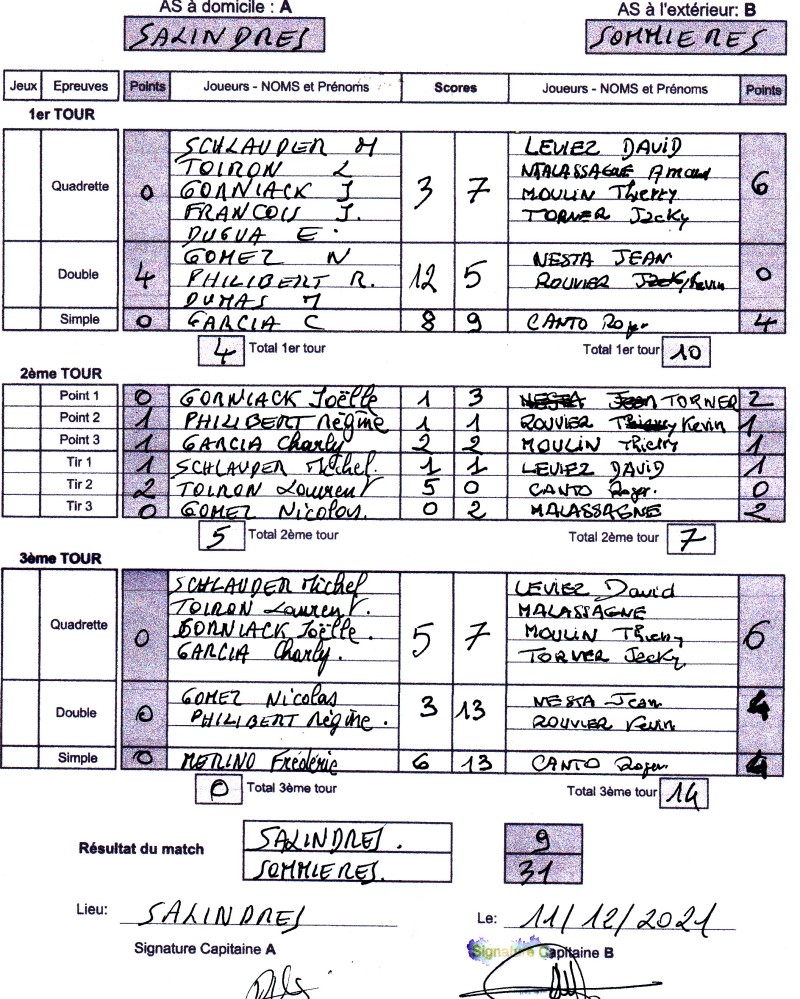 AS à domicile : A AS à l'extérieur: B
SALINDRES SOMMIERES
Jeux Epreuves Points Joueurs - NOMS et Prénoms Scores Joueurs - NOMS et Prénoms Points
1er TOUR
SCHLAUDER M LEVIEZ DAVID
TOIRON L MALASSAGNE Arnaud
Quadrette 0 GORNIACK J 3 7 MOULIN Thierry 6
FRANCOIS J. TORNER Jacky
DUGUA E.
GOMEZ N NESTA JEAN
Double 4 PHILIBERT R. 12 5 ROUVIER Kevin 0
DUMAS M
Simple 0 GARCIA C 8 9 CANTO Roger 4
4 Total 1er tour Total 1er tour 10
2ème TOUR
Point 1 0 GORNIACK Joëlle 1 3 TORNER 2
Point 2 1 PHILIBERT Régine 1 1 ROUVIER Kevin 1
Point 3 1 GARCIA Charly 2 2 MOULIN Thierry 1
Tir 1 1 SCHLAUDER Michel. 1 1 LEVIEZ DAVID 1
Tir 2 2 TOIRON Laurent 5 0 CANTO Roger. 0
Tir 3 0 GOMEZ Nicolas. 0 2 MALASSAGNE 2
5 Total 2ème tour Total 2ème tour 7
3ème TOUR
SCHLAUDER Michel LEVIEZ David
TOIRON Laurent. MALASSAGNE
Quadrette 0 GORNIACK Joëlle. 5 7 MOULIN Thierry 6
GARCIA Charly. TORNER Jacky
GOMEZ Nicolas NESTA Jean
Double 0 PHILIBERT Régine. 3 13 ROUVIER Kevin 4
Simple 0 MERINO Frédéric 6 13 CANTO Roger 4
0 Total 3ème tour Total 3ème tour 14
Résultat du match SALINDRES. 9
SOMMIERES. 31
Lieu: SALINDRES Le: 11/12/2021
Signature Capitaine A Signature Capitaine B